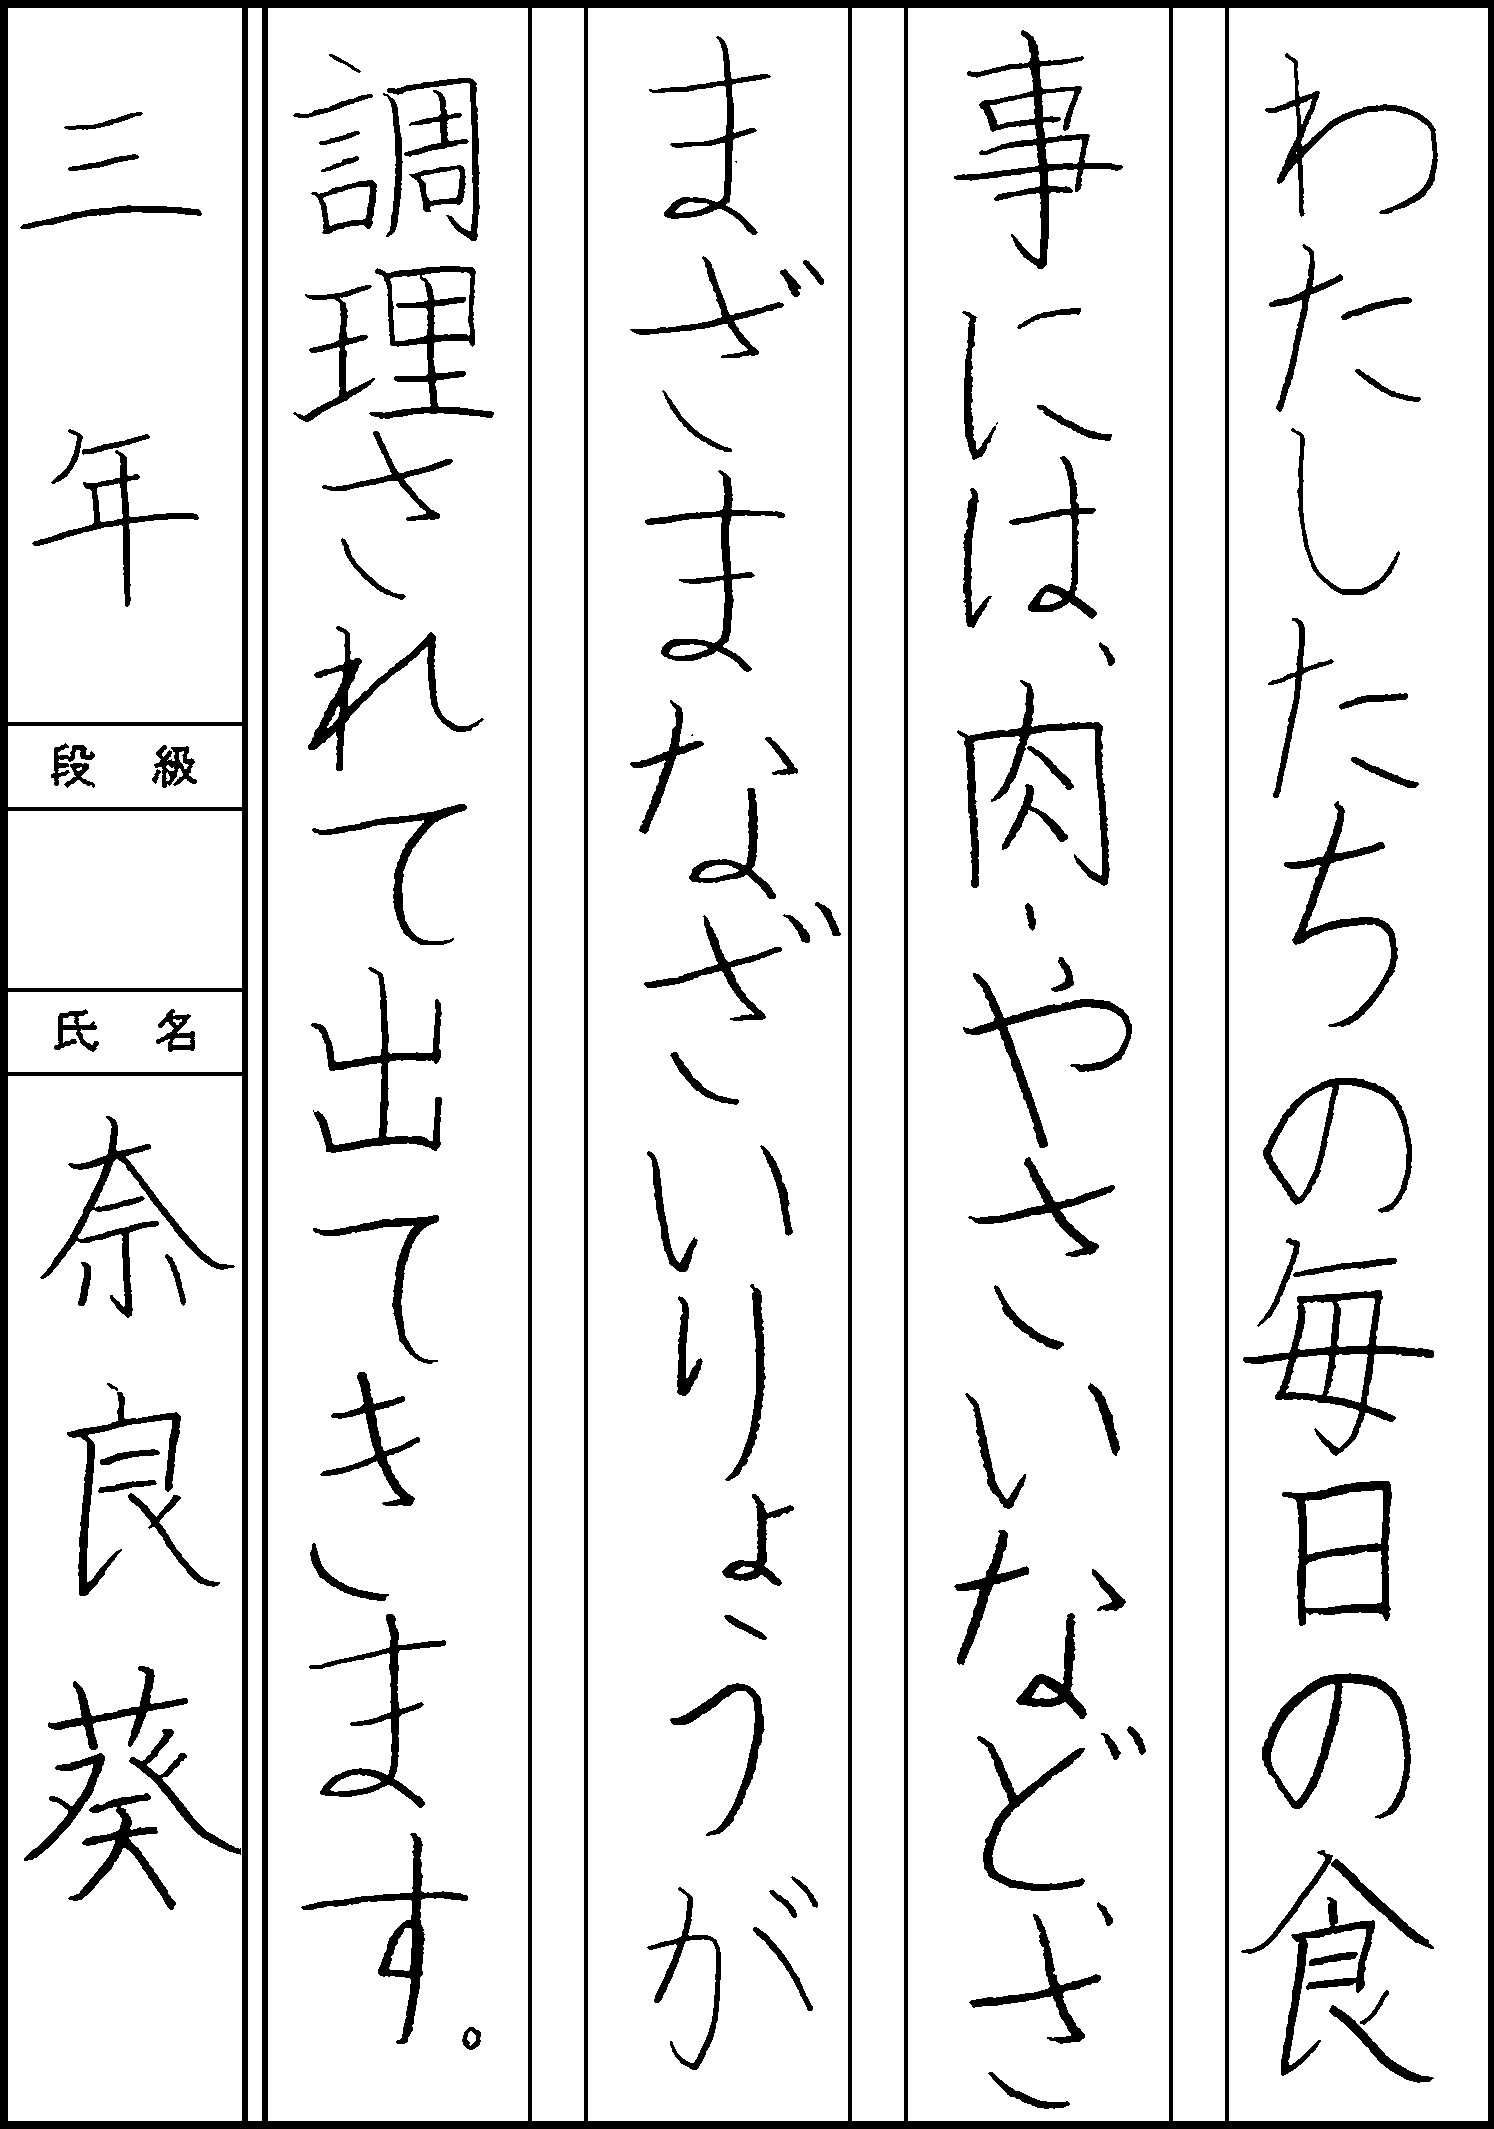 わたしたちの毎日の食
事には、肉・やさいなどさ
まざまなざいりょうが
調理されて出てきます。
三年
段級
氏名
奈良葵